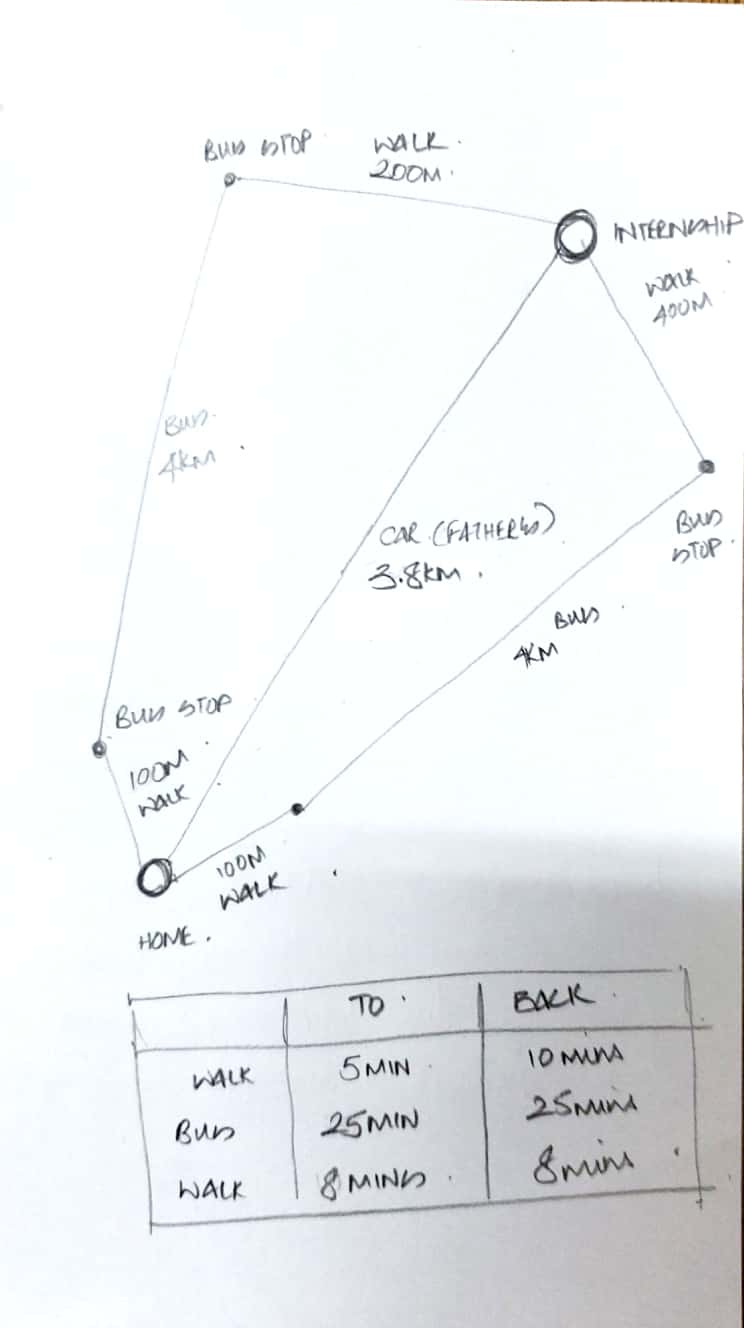 BUS STOP
WALK.
200M.
INTERNSHIP
WALK
400M
BUS.
4KM
CAR (FATHER'S)
3.8KM.
BUS
STOP.
BUS
4KM
BUS STOP
100M
WALK
100M
WALK
HOME.
TO BACK
WALK 5MIN 10MINS
BUS 25MIN 25MINS
WALK 8MINS 8MINS